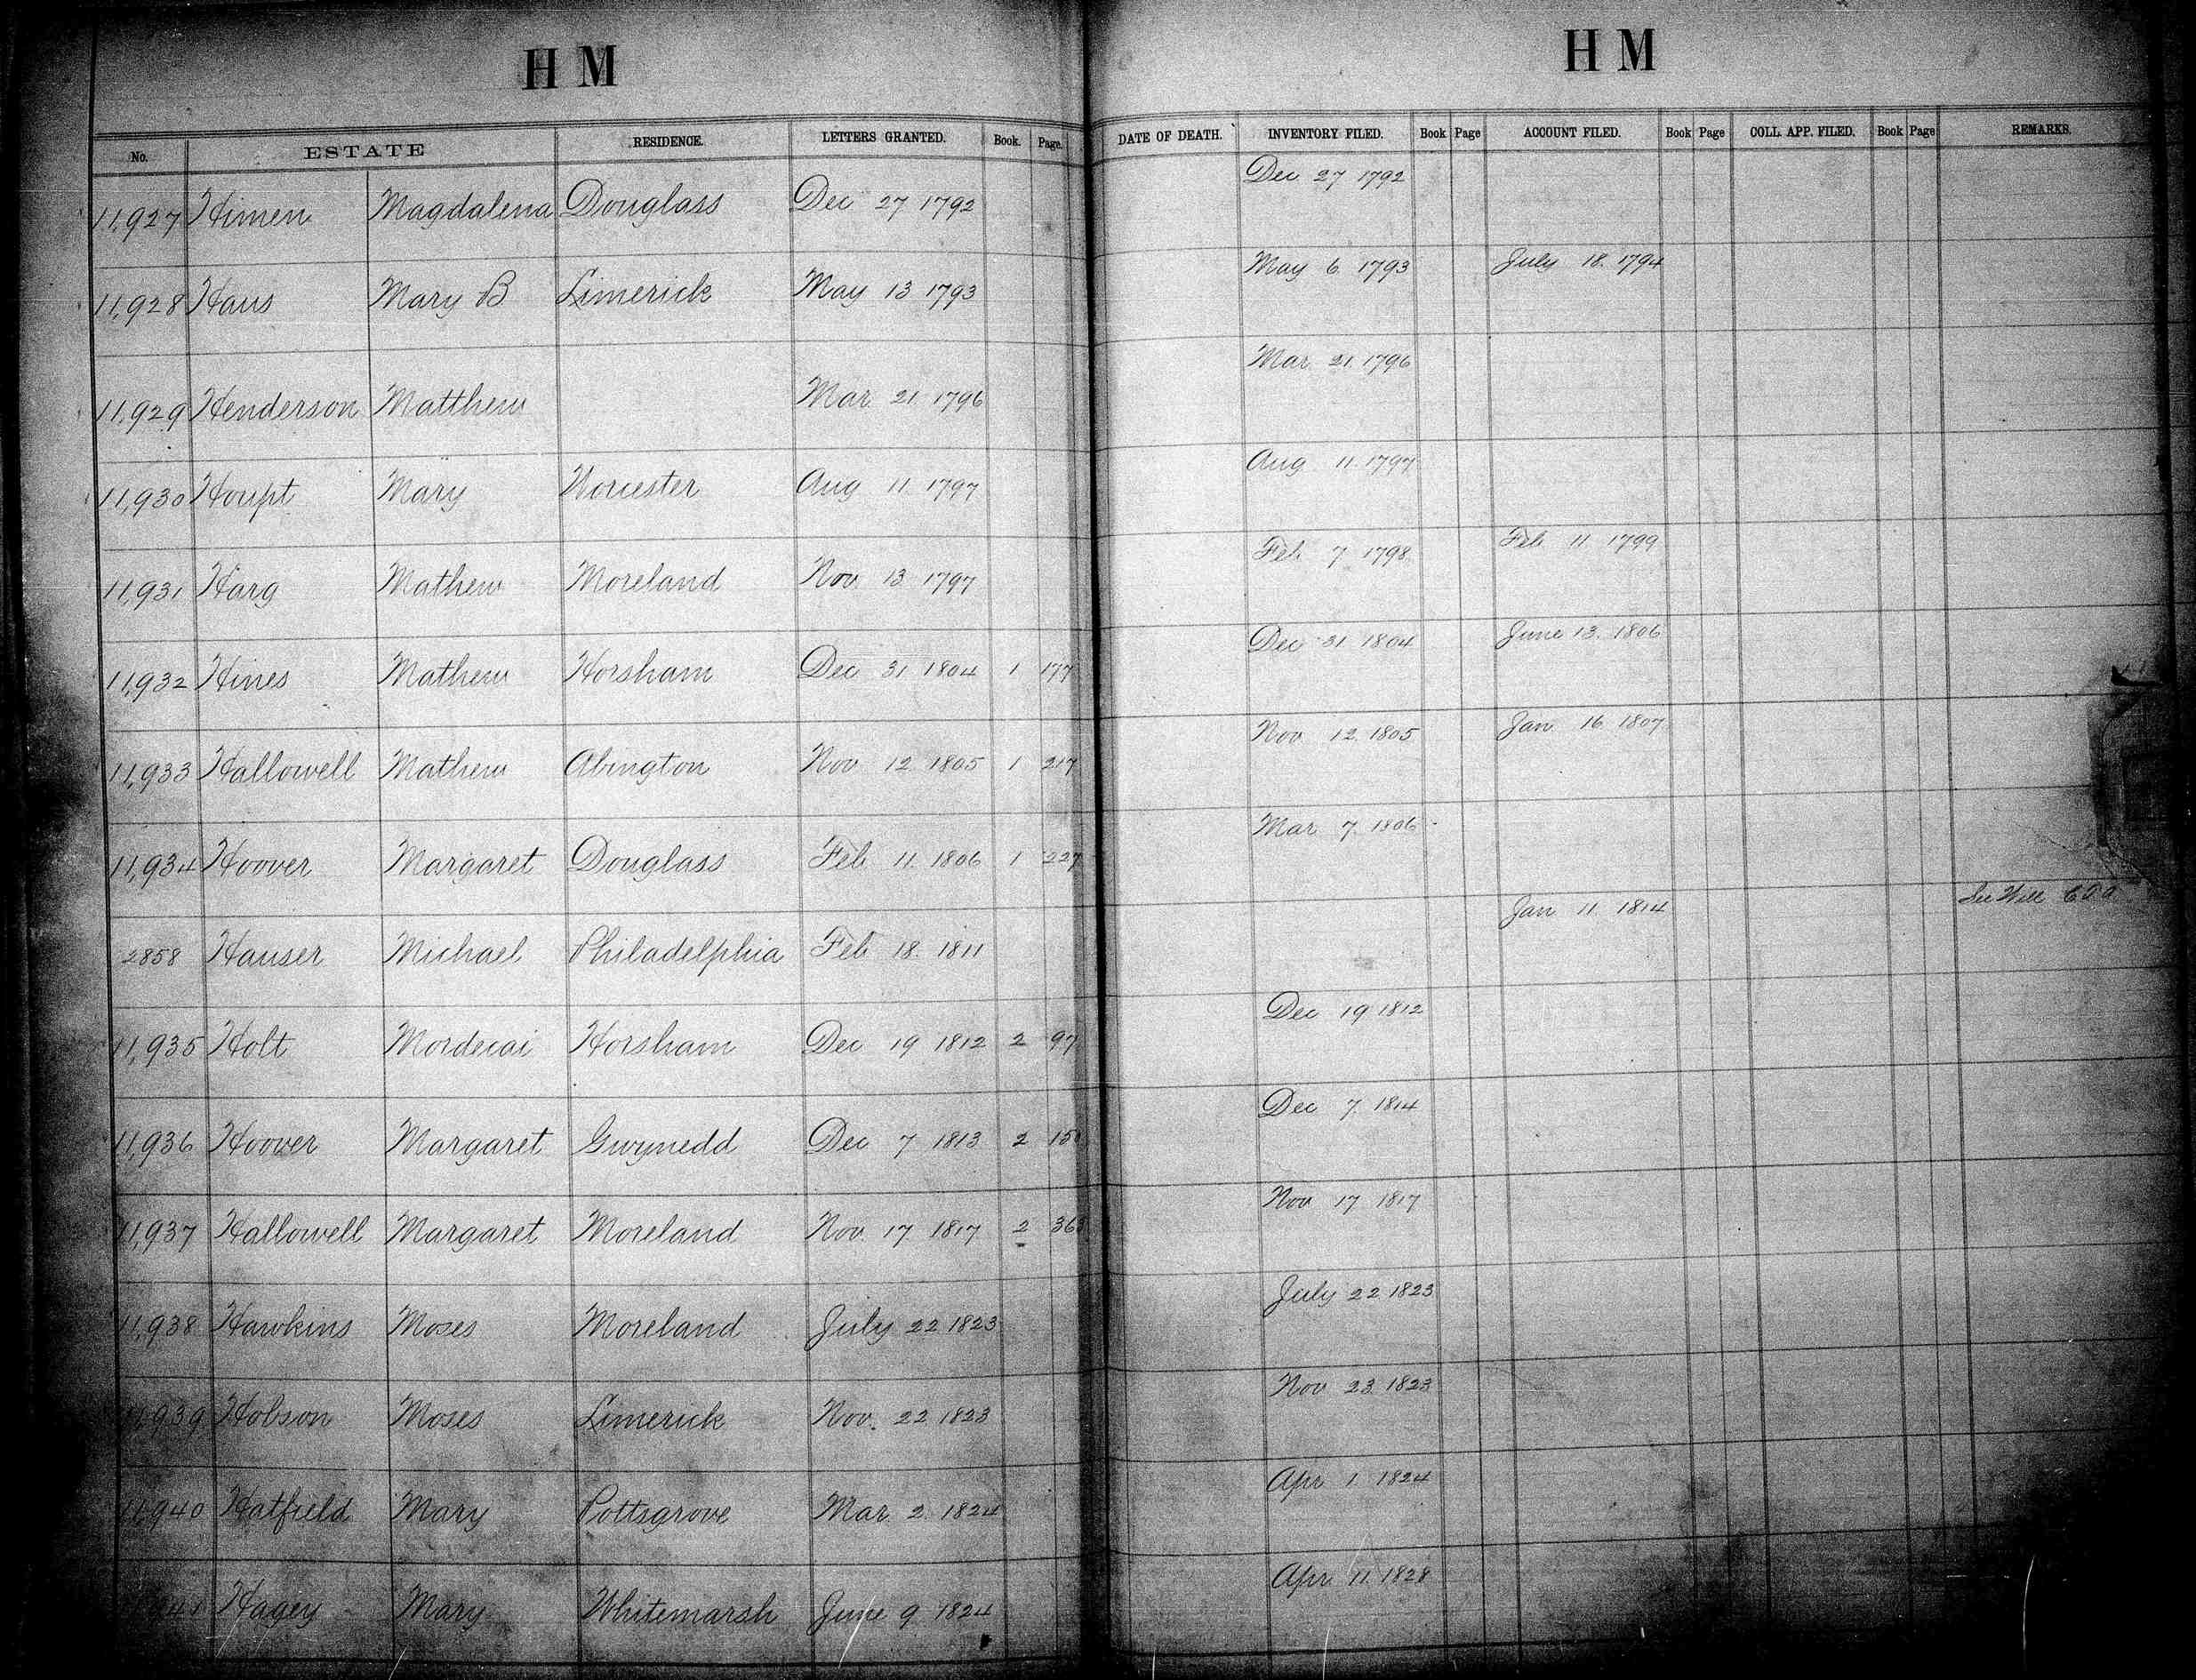 H M
No. ESTATE RESIDENCE. LETTERS GRANTED. Book. Page.
11,927 Himen Magdalena Douglass Dec 27 1792
11,928 Haus Mary B Limerick May 13 1793
11,929 Henderson Matthew Mar. 21 1796
11,930 Houpt Mary Worcester Aug 11 1797
11,931 Harg Mathew Moreland Nov 13 1797
11,932 Hines Mathew Horsham Dec 31 1804 1 177
11,933 Hallowell Mathew Abington Nov 12 1805 1 217
11,934 Hoover Margaret Douglass Feb 11. 1806 1 227
2858 Hauser Michael Philadelphia Feb 18. 1811
11,935 Holt Mordecai Horsham Dec 19 1812 2 97
11,936 Hoover Margaret Gwynedd Dec 7 1813 2
11,937 Hallowell Margaret Moreland Nov. 17 1817 2
11,938 Hawkins Moses Moreland July 22 1823
11,939 Hobson Moses Limerick Nov. 22 1823
11,940 Hatfield Mary Pottsgrove Mar. 2. 1824
Hagey Mary Whitemarsh June 9 1824
H M
DATE OF DEATH. INVENTORY FILED. Book Page ACCOUNT FILED. Book Page COLL. APP. FILED. Book Page REMARKS.
Dec 27 1792
May 6 1793 July 18. 1794
Mar 21. 1796
Aug 11. 1797
Feb 7 1798 Feb 11 1799
Dec 31 1804 June 13. 1806
Nov 12. 1805 Jan 16 1807
Mar 7. 1806
Jan 11. 1814 See Will
Dec 19 1812
Dec 7. 1814
Nov 17 1817
July 22 1823
Nov 23. 1823
Apr 1 1824
Apr 11. 1828